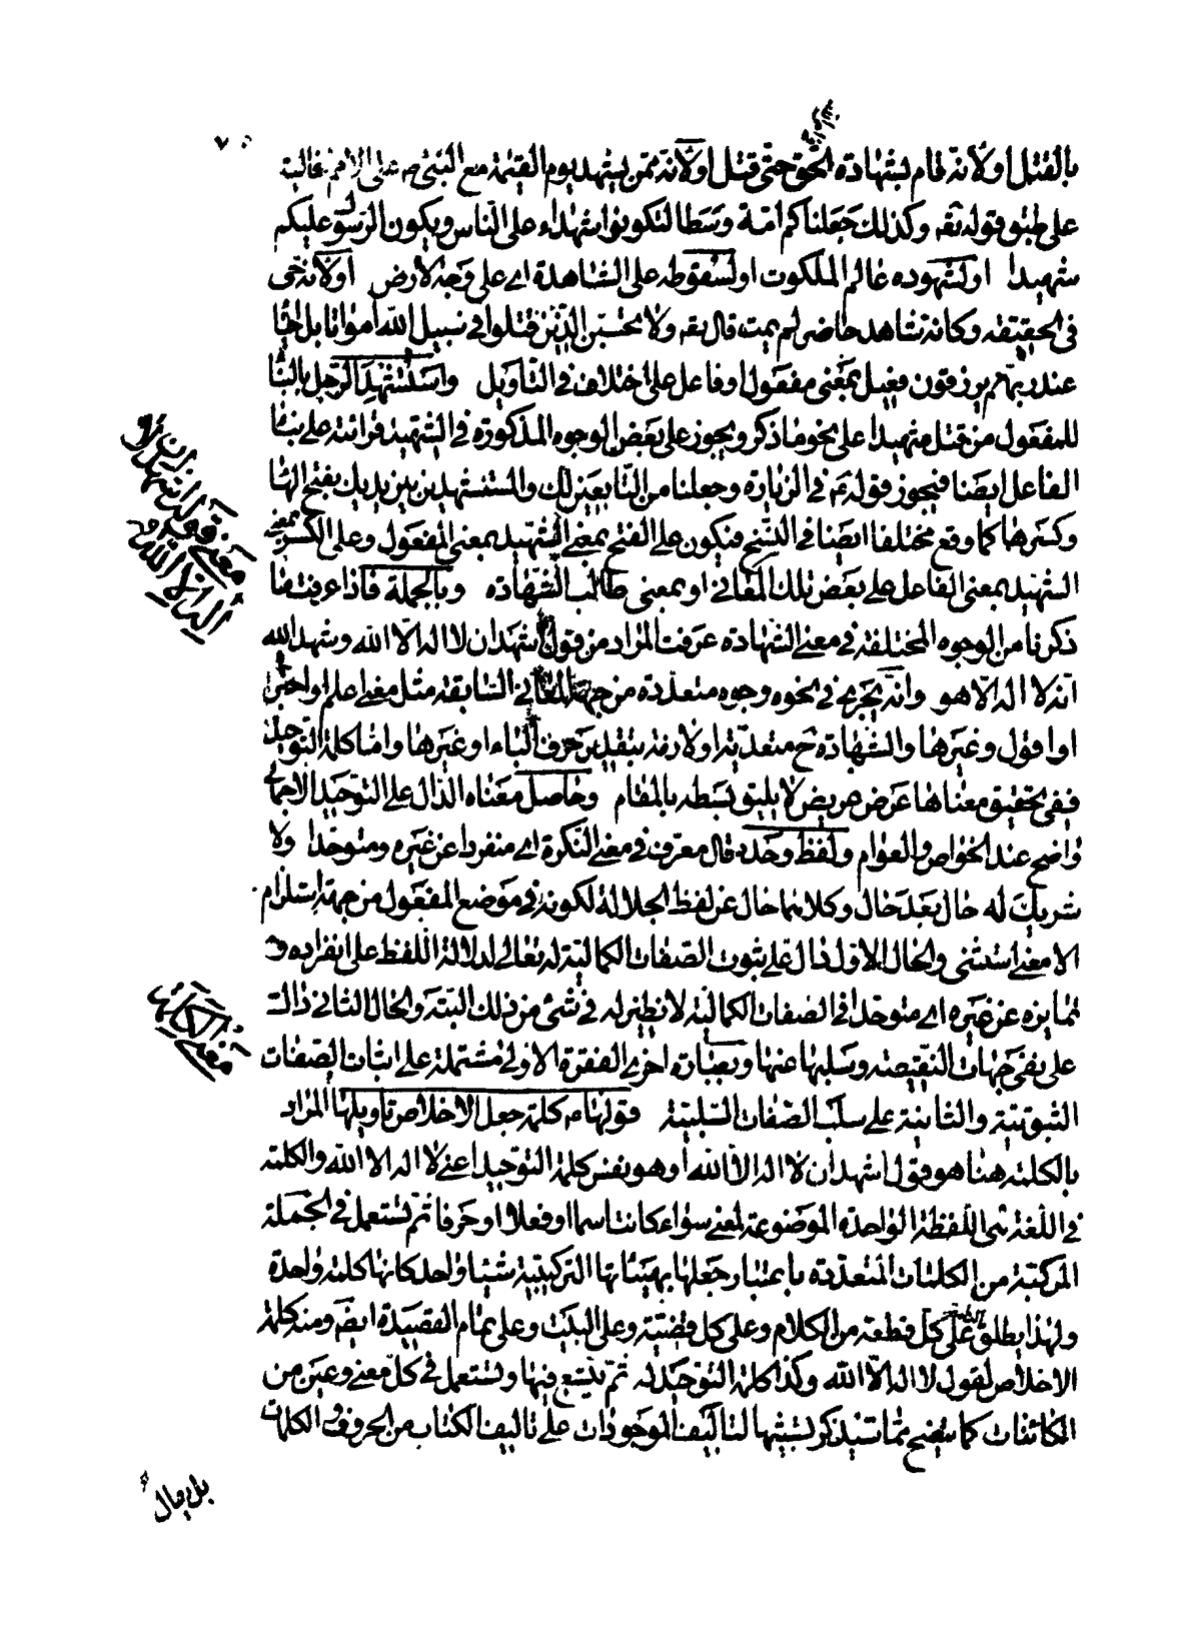 ٧٠
بالقتل او لانه قام بشهادة الحق حتى قتل او لانه ممن يشهد يوم القيمة مع النبى ص على الامم
على طبق قوله تعه وكذلك جعلناكم امة وسطا لتكونوا شهداء على الناس ويكون الرسول عليكم
شهيدا او لشهوده عالم الملكوت او لسقوطه على الشاهدة اى على وجه الارض او لانه حى
فى الحقيقة وكانه شاهد حاضر لم يمت قال تعه ولا تحسبن الذين قتلوا فى سبيل الله امواتا بل احياء
عند ربهم يرزقون فعيل بمعنى مفعول او فاعل على اختلاف فى التاويل واستشهد الرجل بالبناء
للمفعول من قتل شهيدا على نحو ما ذكر ويجوز على بعض الوجوه المذكورة فى الشهيد قرائته على بناء
الفاعل ايضا فيجوز قوله ع فى الزيارة وجعلنا من التابعين لك والمستشهدين بين يديك بفتح الهاء
وكسرها كما وقع مختلفا ايضا فى النسخ فيكون على الفتح بمعنى الشهيد بمعنى المفعول وعلى الكسر بمعنى
الشهيد بمعنى الفاعل على بعض تلك المعانى او بمعنى طالب الشهادة وبالجملة فاذا عرفت ما
ذكرنا من الوجوه المختلفة فى معنى الشهادة عرفت المراد من قول اشهد ان لا اله الا الله وشهد الله
انه لا اله الا هو وانه يجرى فى نحوه وجوه متعددة من جهة المعانى السابقة مثل معنى اعلم او اخبر
او اقول وغيرها والشهادة ح متعدية او لازمة بتقدير حرف الباء او غيرها واما كلمة التوحيد
ففى تحقيق معناها عرض عريض لا يليق بسطه بالمقام وحاصل معناه الدال على التوحيد الاجمالى
واضح عند الخواص والعوام ولفظ وحده قال معرف فى معنى النكرة اى منفردا عن غيره ومتوحدا ولا
شريك له حال بعد حال وكلاهما حال عن لفظ الجلالة لكونه فى موضع المفعول من جهة استلزام
الا معنى استثنى والحال الاول دال على ثبوت الصفات الكمالية له تعالى لدلالة اللفظ على انفراده و
تمايزه عن غيره اى متوحدا فى الصفات الكمالية لا نظير له فى شئ من ذلك البتة والحال الثانى دالة
على نفى جهات النقيصة وسلبها عنها وبعبارة اخرى الفقرة الاولى مشتملة على اثبات الصفات
الثبوتية والثانية على سلب الصفات السلبية قولها ع كلمة جعل الاخلاص تاويلها المراد
بالكلمة هنا هو قول اشهد ان لا اله الا الله او هو نفس كلمة التوحيد اعنى لا اله الا الله والكلمة
فى اللغة هى اللفظة الواحدة الموضوعة لمعنى سواء كانت اسما او فعلا او حرفا ثم تستعمل فى الجملة
المركبة من الكلمات المتعددة باعتبار جعلها بهيئاتها التركيبية شيئا واحدا كانها كلمة واحدة
ولهذا يطلق الكلمة على كل قطعة من الكلام وعلى كل قضية وعلى البيت وعلى تمام القصيدة ايضه ومنه كلمة
الاخلاص لقول لا اله الا الله وكذا كلمة التوحيد له ثم يتسع فيها وتستعمل فى كل معنى وعين من
الكائنات كما سيتضح مما سيذكر لشبهها لتاليف الموجودات على تاليف الكتاب من الحروف والكلمات
معنى قولها اشهد ان لا
اله الا الله
معنى الكلمة
بل يقال